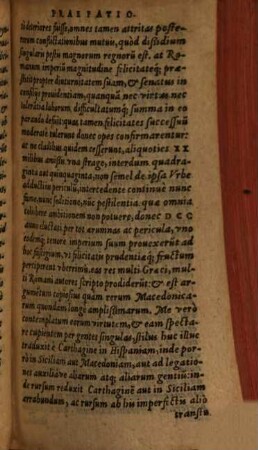 PRAEFATIO.
deteriores fuisse, omnes tamen attritas poste-
rum consultationibus mutuis, quòd dissidium
singulare pestis magnorum regnorum est. at Ro
manum imperiū magnitudine felicitateq́; præ-
stitit propter diuturnitatem suam, & senatus in
consilijs prudentiam, quanquā nec virtus nec
tolerātia laborum, difficultatumq́; summa in eo
populo desuit: quos tamen felicitates successuū
moderatè tulerunt donec opes confirmarentur:
ut ne cladibus quidem cesserunt, aliquoties XX
milibus amissis vna strage, interdum quadra-
ginta aut quinquaginta, non semel de ipsa Vrbe
adducti in periculū, intercedente continuè nunc
fame, nunc seditione, nūc pestilentia. quæ omnia
cohibere ambitionem non potuere, donec DCC
annis eluctati per tot ærumnas at pericula, vno
eodemq́; tenore imperium suum prouexerūt ad
hoc fastigium, vt felicitatis prudentiæq́; fructum
perciperent vberrimū. eas res multi Græci, mul-
ti Romani autores scripto prodiderūt: & est ar-
gumentum copiosius quàm rerum Macedonica-
rum quondam longè amplissimarum. Me verò
contemplatum eorum virtutem, & eam specta-
re cupientem per gentes singulas, stilus huc illuc
traduxit è Carthagine in Hispaniam, inde por-
rò in Siciliam aut Macedoniam, aut ad legatio-
nes auxiliáve aliarum gentium: in-
de rursum reduxit Carthaginē aut in Siciliam
errabundum, ac rursum ab his imperfectis aliò
transtu